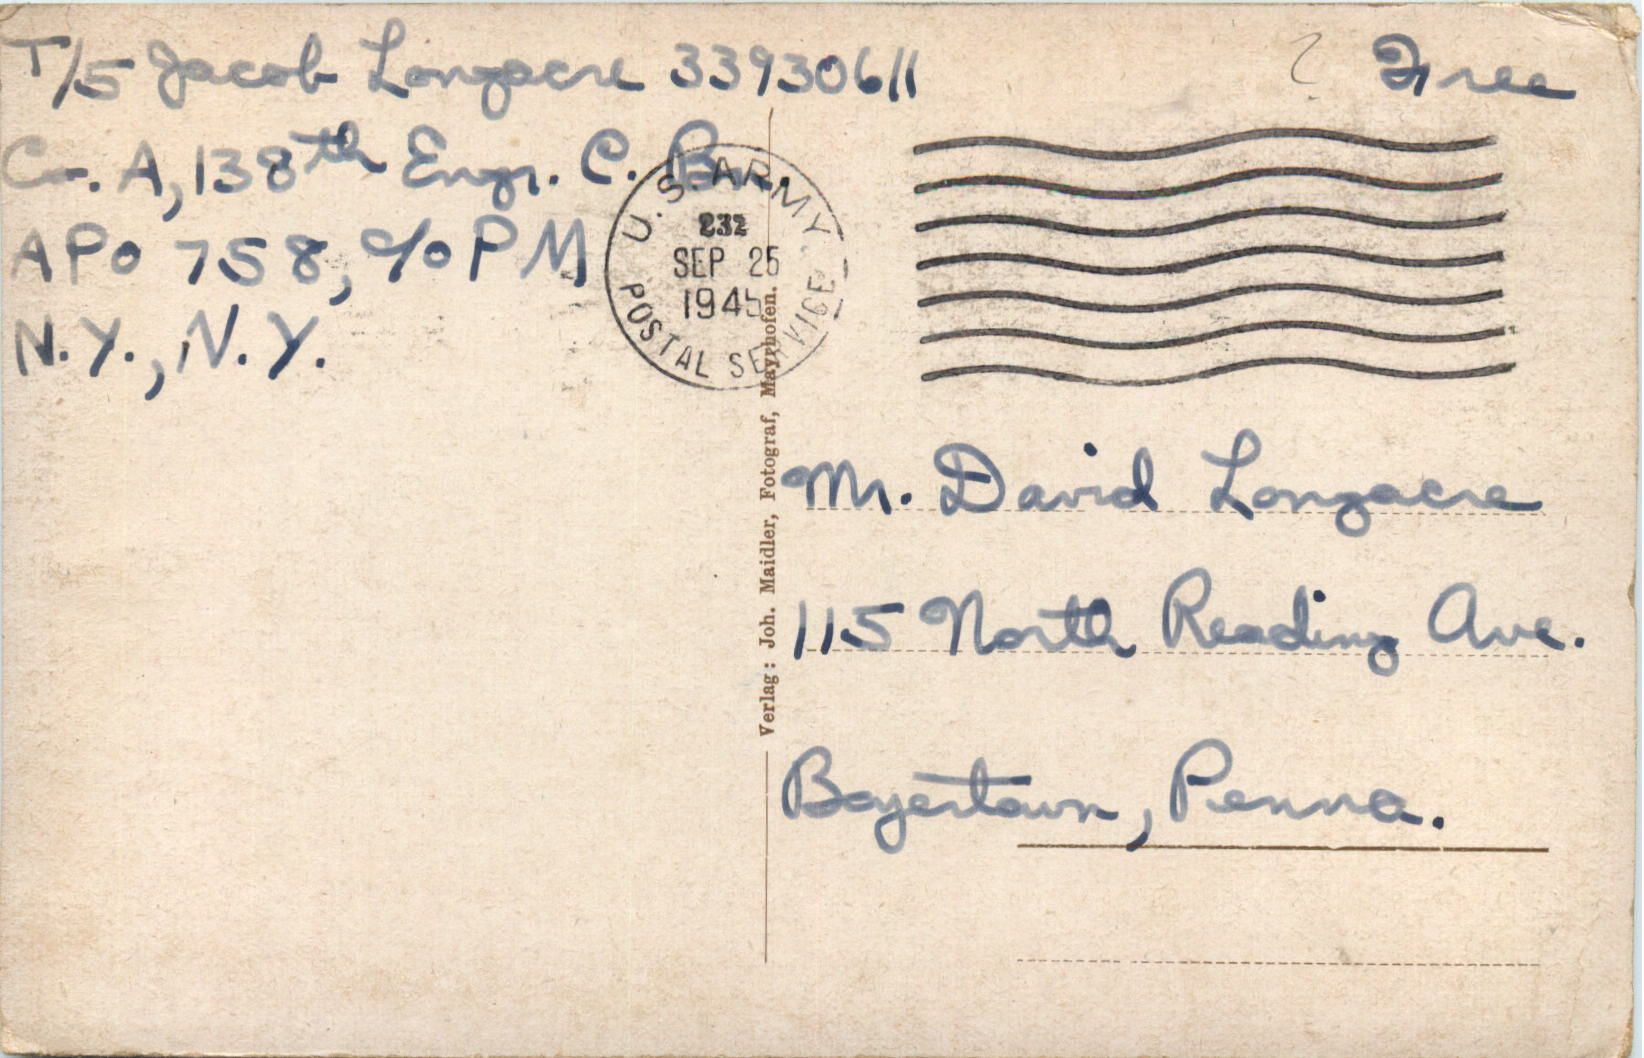 T/5 Jacob Longacre 33930611
Co. A, 138th Engr. C. Bn.
APO 758, c/o PM
N.Y., N.Y.
? Free
U.S. ARMY
232
SEP 25
1945
POSTAL SERVICE
Verlag: Joh. Maidler, Fotograf, Mayrhofen.
Mr. David Longacre
115 North Reading Ave.
Boyertown, Penna.